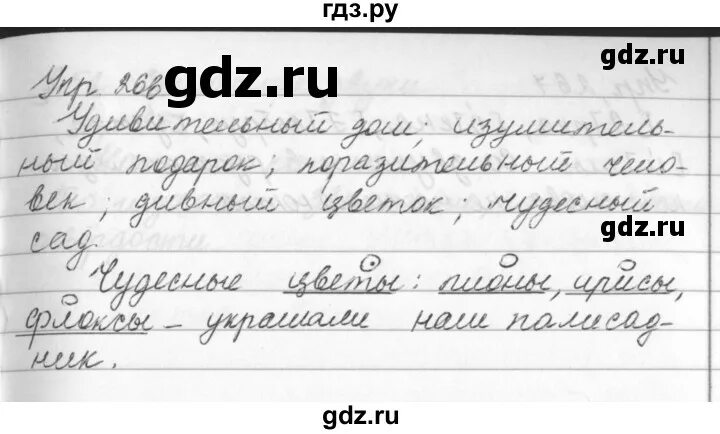 гдз.ру
Упр. 266
gdz.ru
gdz.ru
Удивительный дом, изумитель-
ный подарок; поразительный чело-
век; дивный цветок; чудесный
gdz.ru
сад.
Чудесные цветы: пионы, ирисы,
флоксы – украшали наш палисад-
ник.
gdz.ru